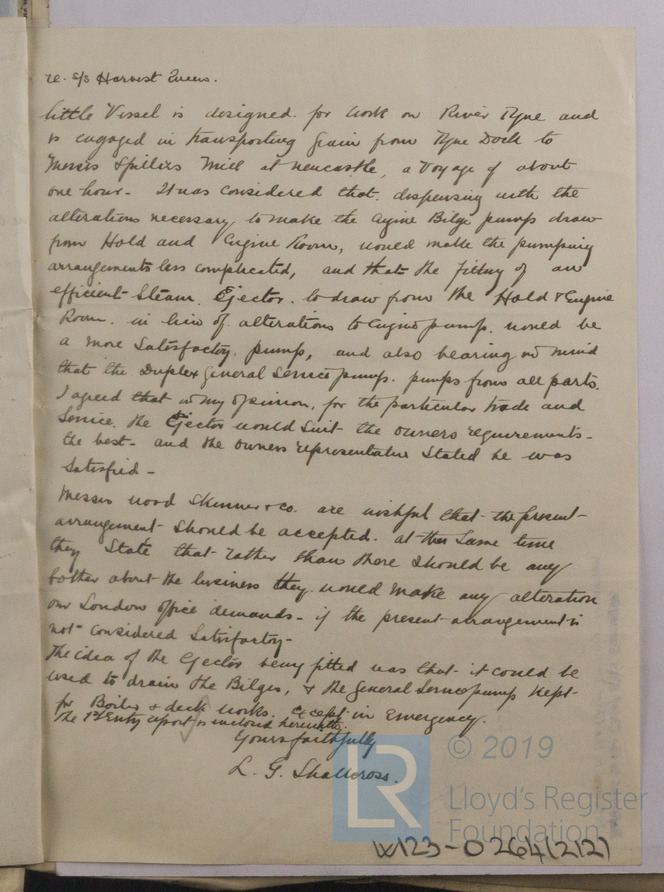 re. s/s Harvest Queen.
little Vessel is designed for work on River Tyne and
is engaged in transporting grain from Tyne Dock to
Messrs Spillers Mill at Newcastle, a Voyage of about
one hour - It was considered that dispensing with the
alterations necessary, to make the Engine Bilge pumps draw
from Hold and Engine Room, would make the pumping
arrangements less complicated, and that the fitting of an
efficient Steam Ejector to draw from the Hold & Engine
Room. in lieu of alterations to Engine pump. would be
a more Satisfactory pump, and also bearing in mind
that the Duplex general Service pump. pumps from all parts.
I agreed that in my opinion, for the particular trade and
Service. the Ejector would Suit the owners requirements -
the best - and the owners representative Stated he was
Satisfied -
Messrs Wood Skinner & Co. are wishful that the present -
arrangement should be accepted. at the Same time
they State that rather than there should be any
bother about the business they would make any alteration
our London office demands - if the present arrangement is
not considered Satisfactory -
The idea of the Ejector being fitted was that it could be
used to drain the Bilges, & the general Service pump kept -
for Boiler & deck works. except in Emergency.
The 1st Entry report is enclosed herewith.
Yours faithfully
L. G. Shallcross.
LR
© 2019
Lloyd's Register
Foundation
W123-0264(2/2)